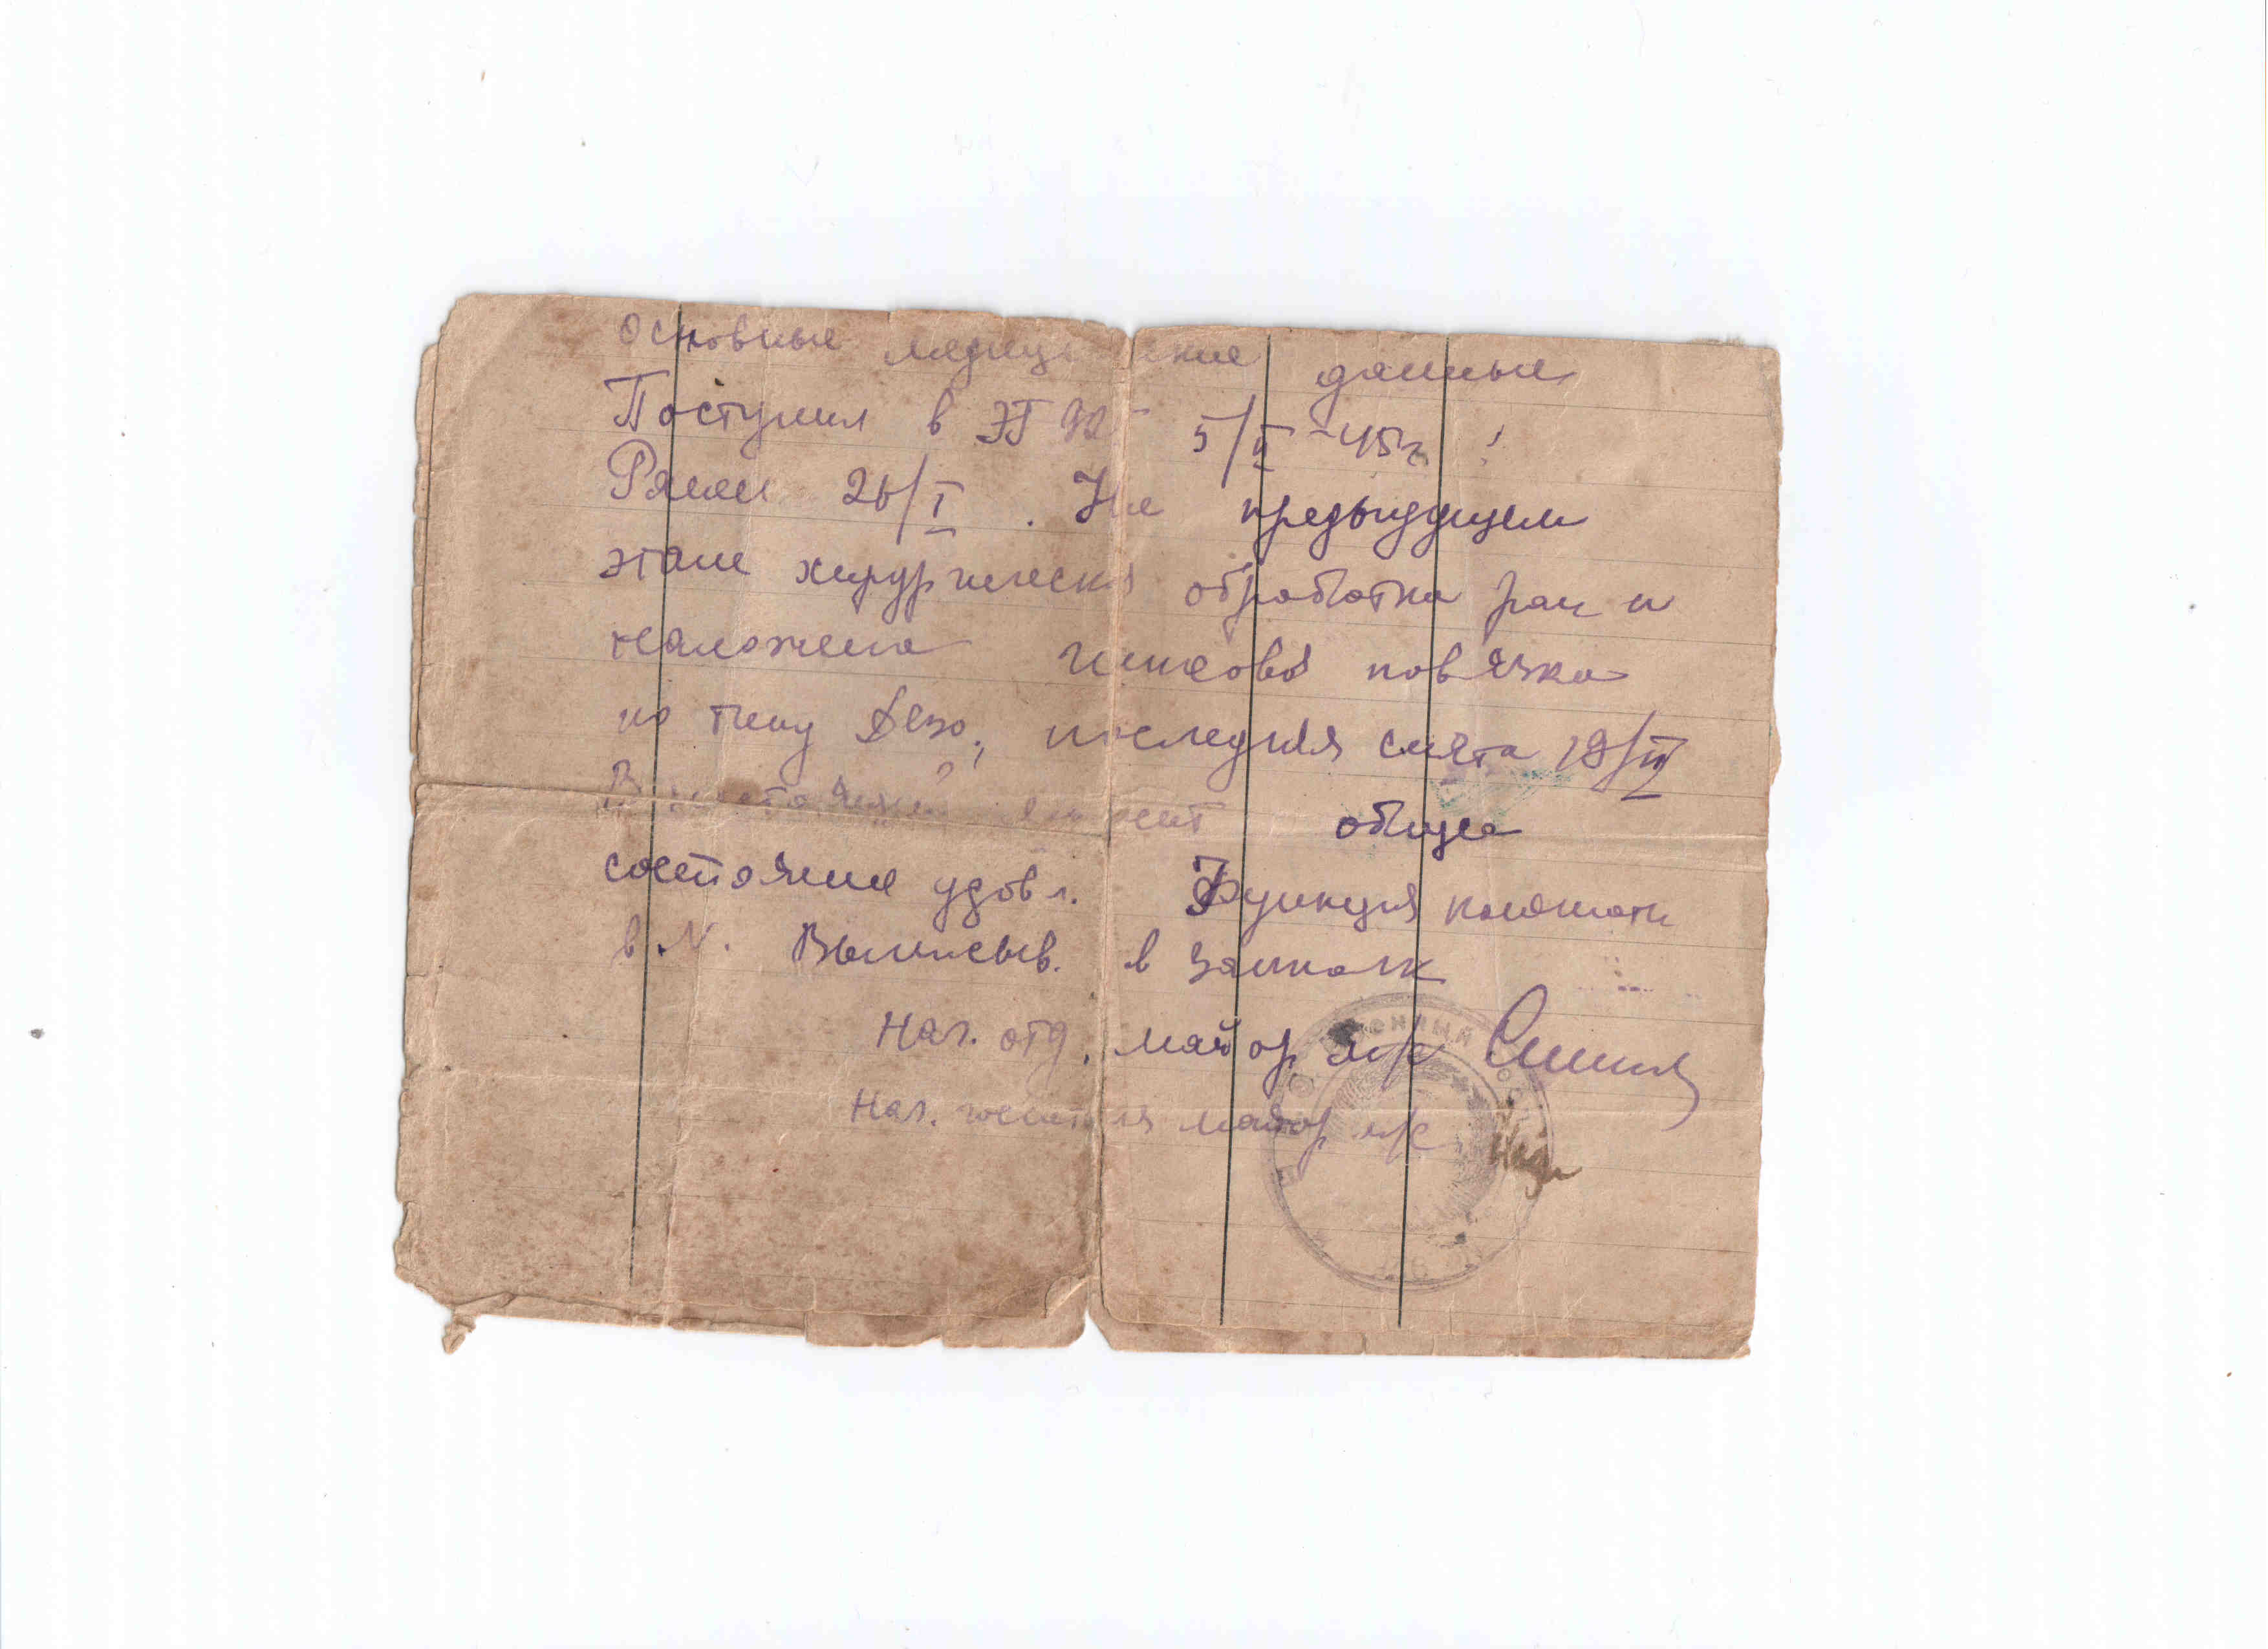 основные медиц ские данные
Поступил в ЭГ 5/II-45 г.
Ранен 26/I. На предыдущем
этапе хирургическ обработка ран и
наложена гипсовая повязка
по типу Дезо, последняя снята 19/III
В настоящий момент общее
состояние удовл. Функция конечности
в N. Выписыв. в запполк
Нач. отд. майор м/с
Нач. госпиталя майор м/с